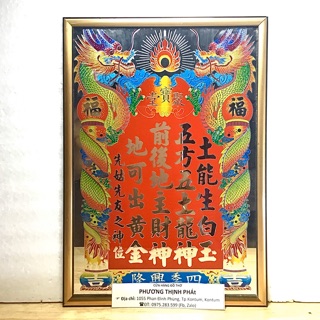 寶
福
福
土能生白玉
五方五土龍神
前後地主財神
地可出黃金
先姑先友之神位
四季興隆
CỬA HÀNG ĐỒ THỜ
PHƯƠNG THỊNH PHÁT
Địa chỉ: 1055 Phan Đình Phùng, Tp Kontum, Kontum
ĐT: 0975 283 599 (Fb, Zalo)